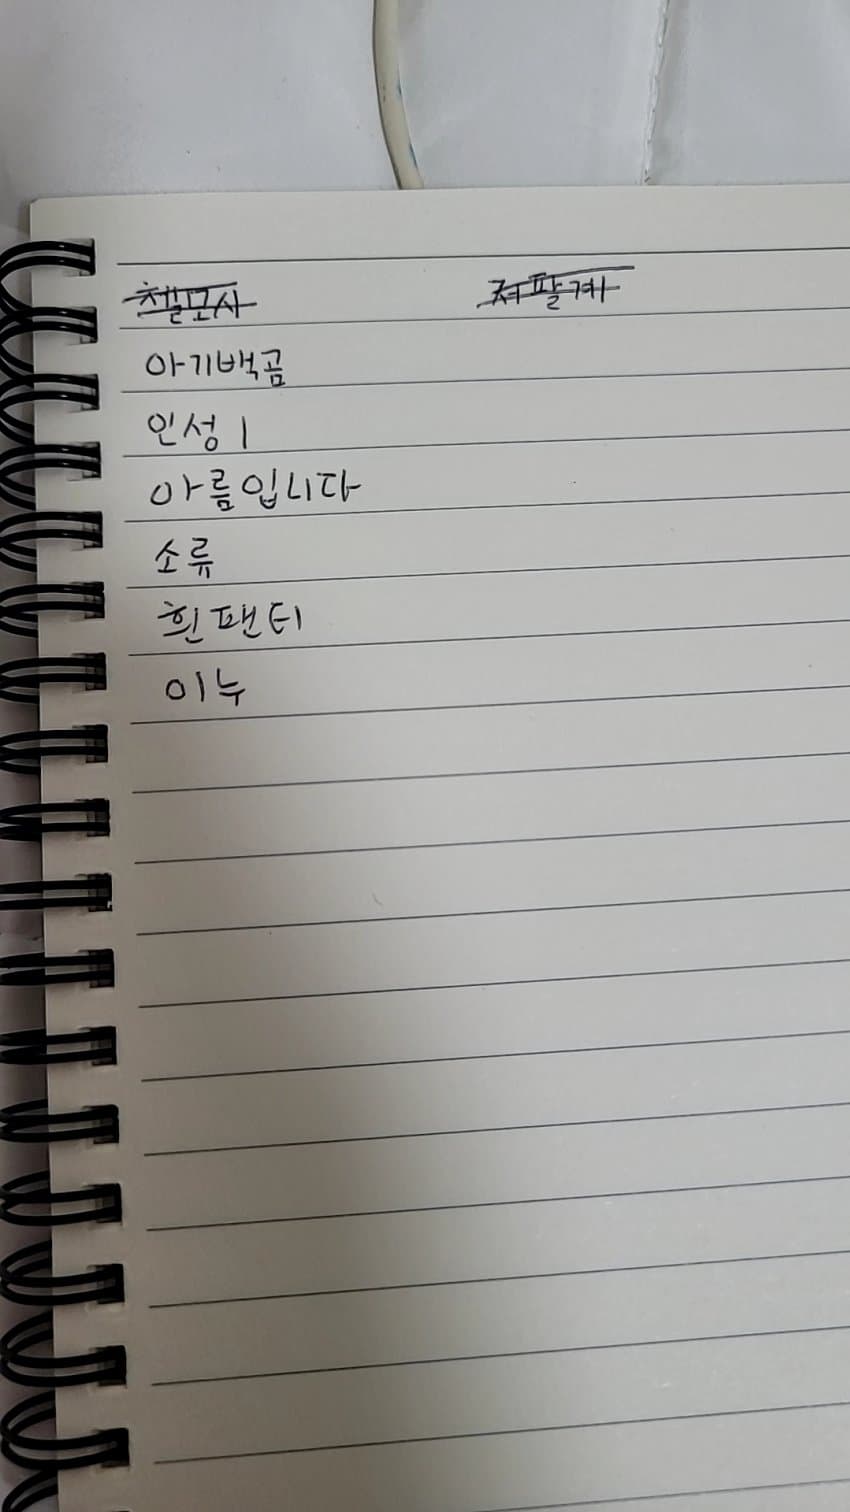 첼모사 저팔계
아기백곰
인성 1
아름입니다
소류
흰팬티
이누